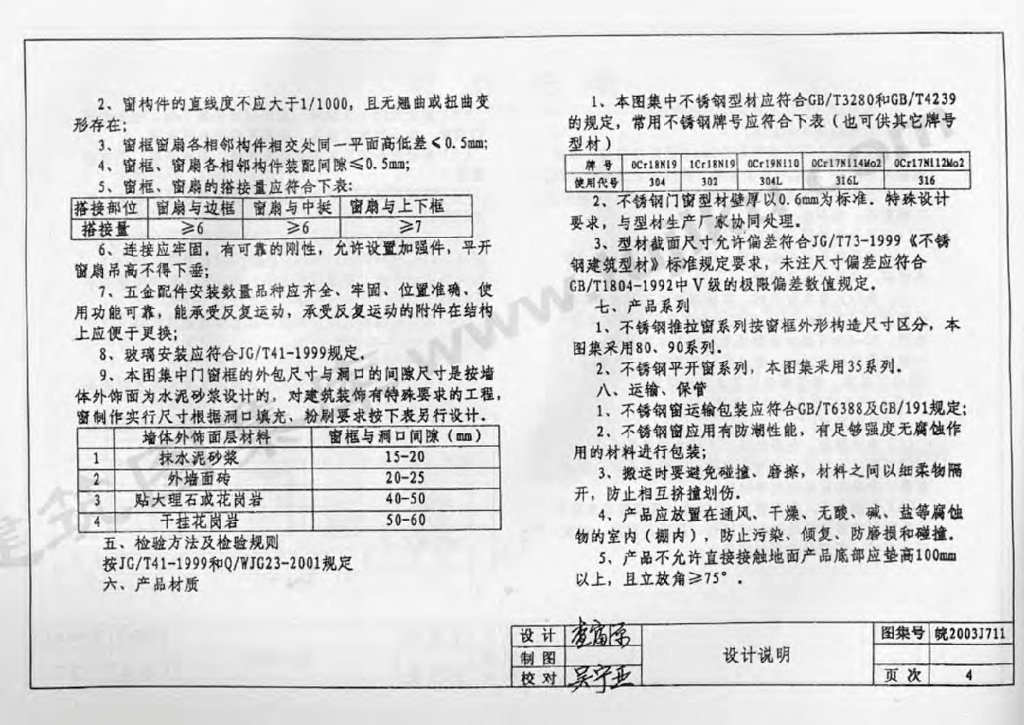 2、窗构件的直线度不应大于1/1000，且无翘曲或扭曲变
形存在；
3、窗框窗扇各相邻构件相交处同一平面高低差≤0.5mm；
4、窗框、窗扇各相邻构件装配间隙≤0.5mm；
5、窗框、窗扇的搭接量应符合下表：
搭接部位 窗扇与边框 窗扇与中挺 窗扇与上下框
搭接量 ≥6 ≥6 ≥7
6、连接应牢固，有可靠的刚性，允许设置加强件，平开
窗扇吊高不得下垂；
7、五金配件安装数量品种应齐全、牢固、位置准确、使
用功能可靠，能承受反复运动，承受反复运动的附件在结构
上应便于更换；
8、玻璃安装应符合JG/T41-1999规定。
9、本图集中门窗框的外包尺寸与洞口的间隙尺寸是按墙
体外饰面为水泥砂浆设计的，对建筑装饰有特殊要求的工程，
窗制作实行尺寸根据洞口填充、粉刷要求按下表另行设计。
墙体外饰面层材料 窗框与洞口间隙（mm）
1 抹水泥砂浆 15-20
2 外墙面砖 20-25
3 贴大理石或花岗岩 40-50
4 干挂花岗岩 50-60
五、检验方法及检验规则
按JG/T41-1999和Q/WJG23-2001规定
六、产品材质
1、本图集中不锈钢型材应符合GB/T3280和GB/T4239
的规定，常用不锈钢牌号应符合下表（也可供其它牌号
型材）
牌号 0Cr18Ni9 1Cr18Ni9 0Cr19Ni10 0Cr17Ni14Mo2 0Cr17Ni12Mo2
使用代号 304 302 304L 316L 316
2、不锈钢门窗型材壁厚以0.6mm为标准。特殊设计
要求，与型材生产厂家协同处理。
3、型材截面尺寸允许偏差符合JG/T73-1999《不锈
钢建筑型材》标准规定要求，未注尺寸偏差应符合
GB/T1804-1992中V级的极限偏差数值规定。
七、产品系列
1、不锈钢推拉窗系列按窗框外形构造尺寸区分，本
图集采用80、90系列。
2、不锈钢平开窗系列，本图集采用35系列。
八、运输、保管
1、不锈钢窗运输包装应符合GB/T6388及GB/191规定；
2、不锈钢窗应用有防潮性能，有足够强度无腐蚀作
用的材料进行包装；
3、搬运时要避免碰撞、磨擦，材料之间以细柔物隔
开，防止相互挤撞划伤。
4、产品应放置在通风、干燥、无酸、碱、盐等腐蚀
物的室内（棚内），防止污染、倾复、防磨损和碰撞。
5、产品不允许直接接触地面产品底部应垫高100mm
以上，且立放角≥75°。
设计
制图
校对 吴宁亚
设计说明
图集号 皖2003J711
页次 4